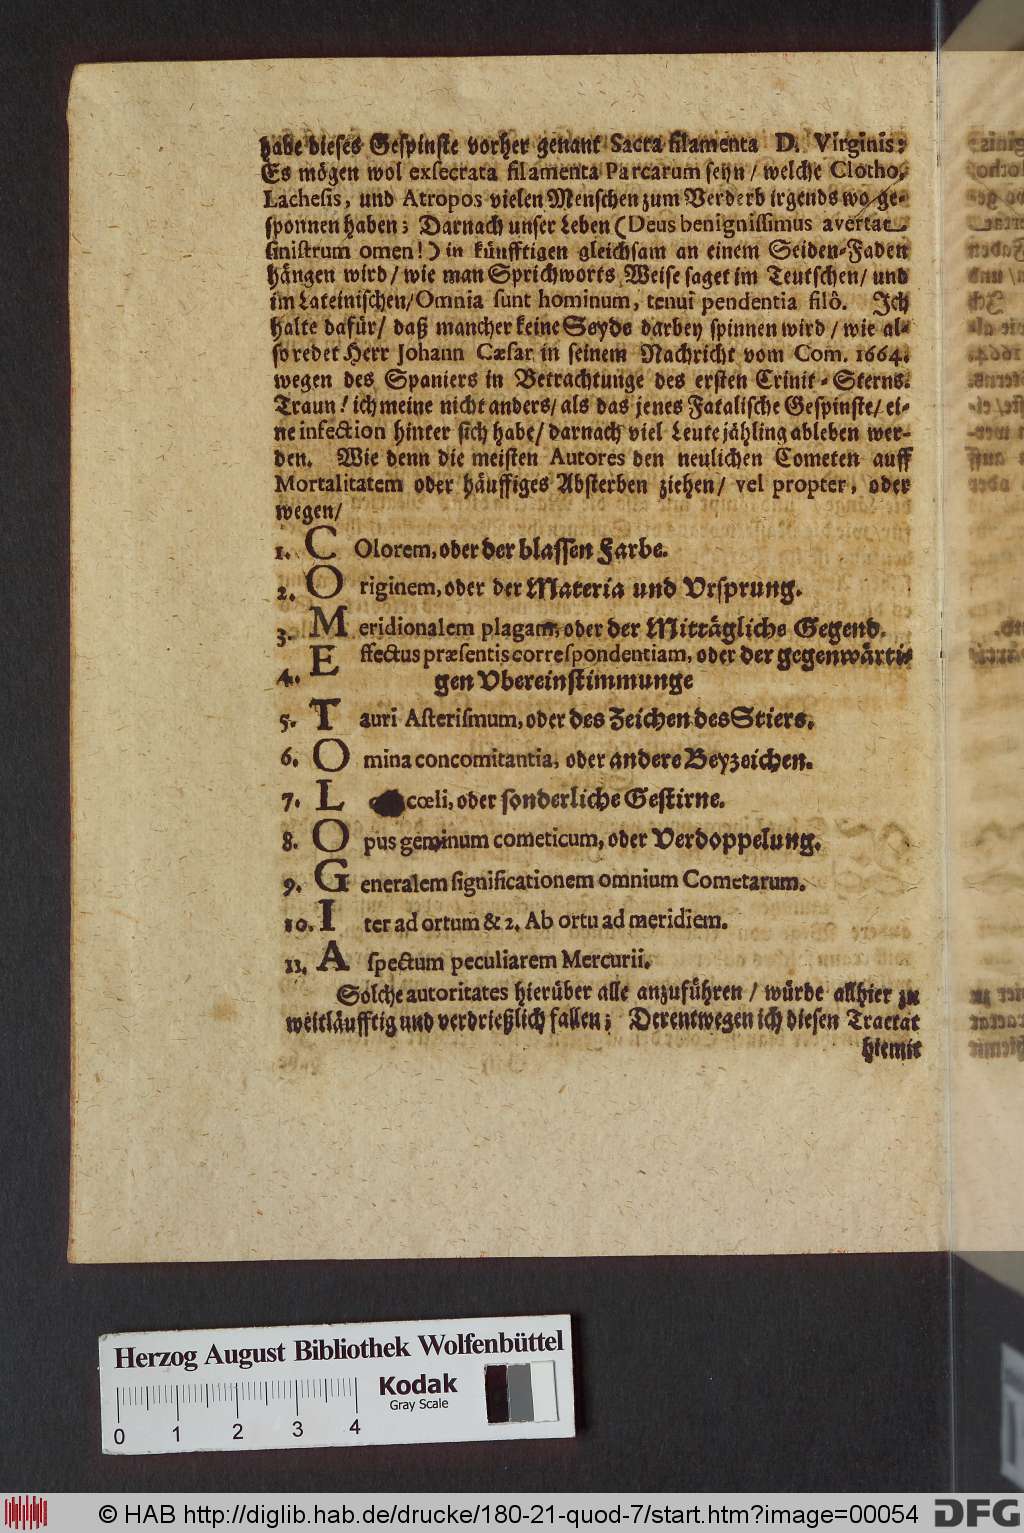 habe dieses Gespinste vorher genant Sacra filamenta D. Virginis:
Es mögen wol exsecrata filamenta Parcarum seyn / welche Clotho,
Lachesis, und Atropos vielen Menschen zum Verderb irgends wo ge-
sponnen haben; Darnach unser Leben (Deus benignissimus avertat
sinistrum omen!) in künfftigen gleichsam an einem Seiden-Faden
hängen wird / wie man Sprichworts Weise saget im Teutschen / und
im Lateinischen / Omnia sunt hominum, tenui pendentia filô. Ich
halte dafür / daß mancher keine Seyde darbey spinnen wird / wie al-
so redet Herr Johann Cæsar in seinem Nachricht vom Com. 1664.
wegen des Spaniers in Betrachtunge des ersten Crinit-Sterns.
Traun! ich meine nicht anders / als das jenes Fatalische Gespinste / ei-
ne infection hinter sich habe / darnach viel Leute jähling ableben wer-
den. Wie denn die meisten Autores den neulichen Cometen auff
Mortalitatem oder häuffiges Absterben ziehen / vel propter, oder
wegen /
1. COlorem, oder der blassen Farbe.
2. Originem, oder der Materia und Vrsprung.
3. Meridionalem plagam, oder der Mitträgliche Gegend.
4. Effectus præsentis correspondentiam, oder der gegenwärti-
gen Vbereinstimmunge
5. Tauri Asterismum, oder des Zeichen des Stiers.
6. Omina concomitantia, oder andere Beyzeichen.
7. L cœli, oder sonderliche Gestirne.
8. Opus geminum cometicum, oder Verdoppelung.
9. Generalem significationem omnium Cometarum.
10. Iter ad ortum & 2. Ab ortu ad meridiem.
11. Aspectum peculiarem Mercurii.
Solche autoritates hierüber alle anzuführen / würde allhier zu
weitläufftig und verdrießlich fallen; Derentwegen ich diesen Tractat
hiemit
Herzog August Bibliothek Wolfenbüttel
Kodak
Gray Scale
0 1 2 3 4
© HAB http://diglib.hab.de/drucke/180-21-quod-7/start.htm?image=00054
DFG